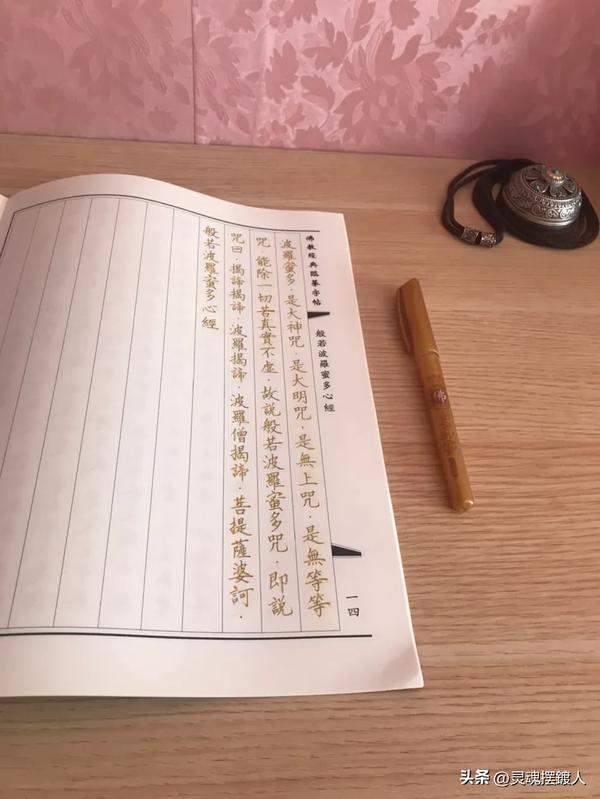 佛教經典臨摹字帖
般若波羅蜜多心經
一四
波羅蜜多．是大神咒．是大明咒．是無上咒．是無等等
咒．能除一切苦真實不虛．故説般若波羅蜜多咒．即説
咒曰．揭諦揭諦．波羅揭諦．波羅僧揭諦．菩提薩婆訶．
般若波羅蜜多心經
佛
头条 @灵魂摆鍍人